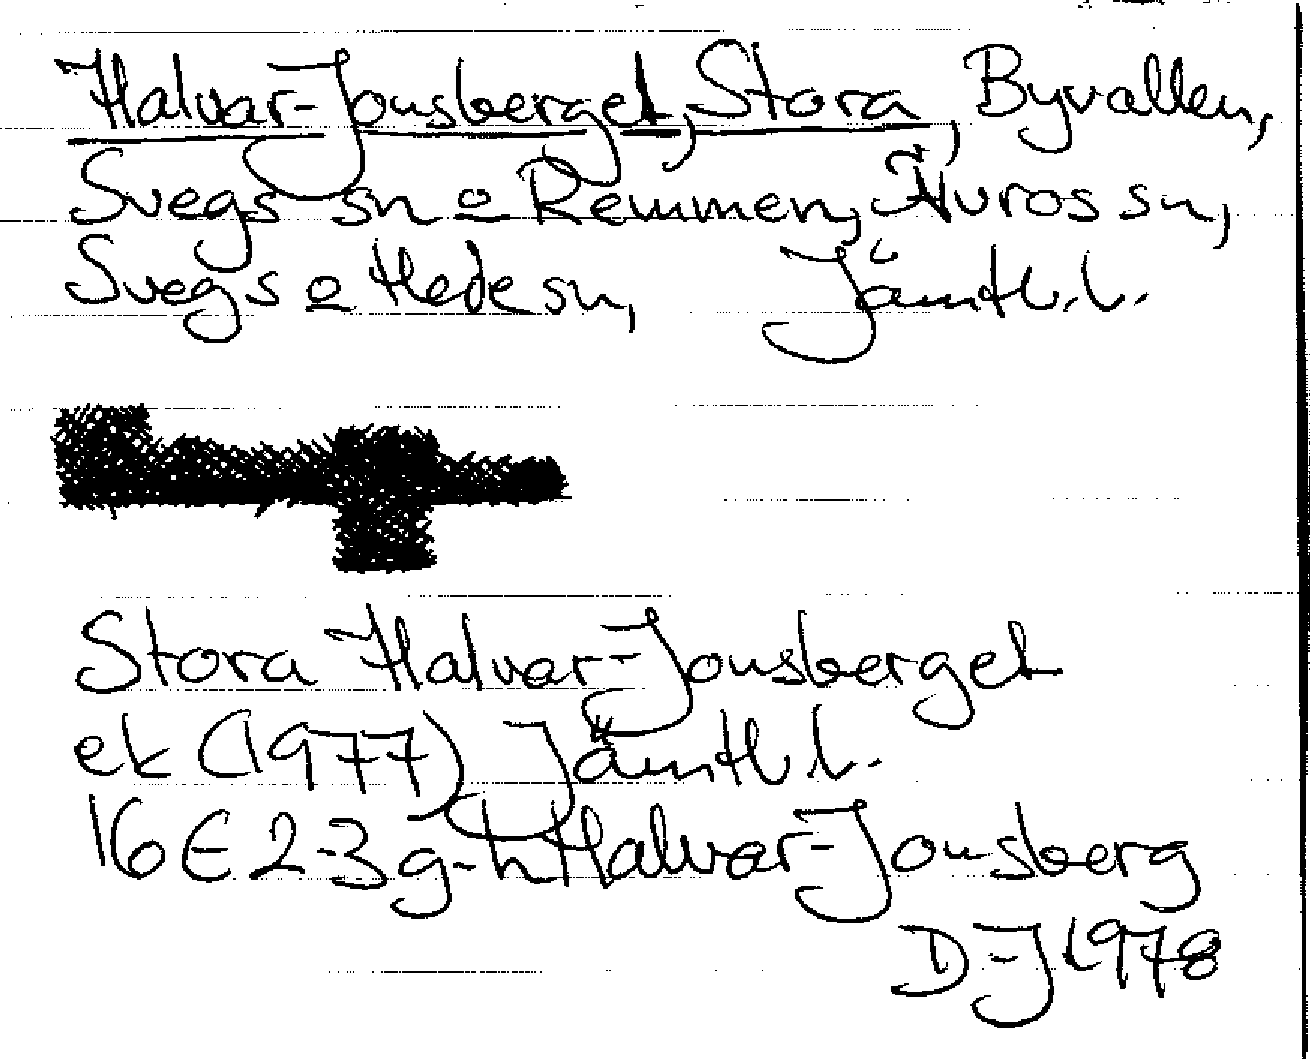 Halvar-Jonsberget, Stora, Byvallen,
Svegs sn o Remmen, Älvros sn,
Svegs o Hede sn, Jämtl. l.
Stora Halvar-Jonsberget
ek (1977) Jämtl. l.
16E 2-3 g-h Halvar-Jonsberg
D-J 1978